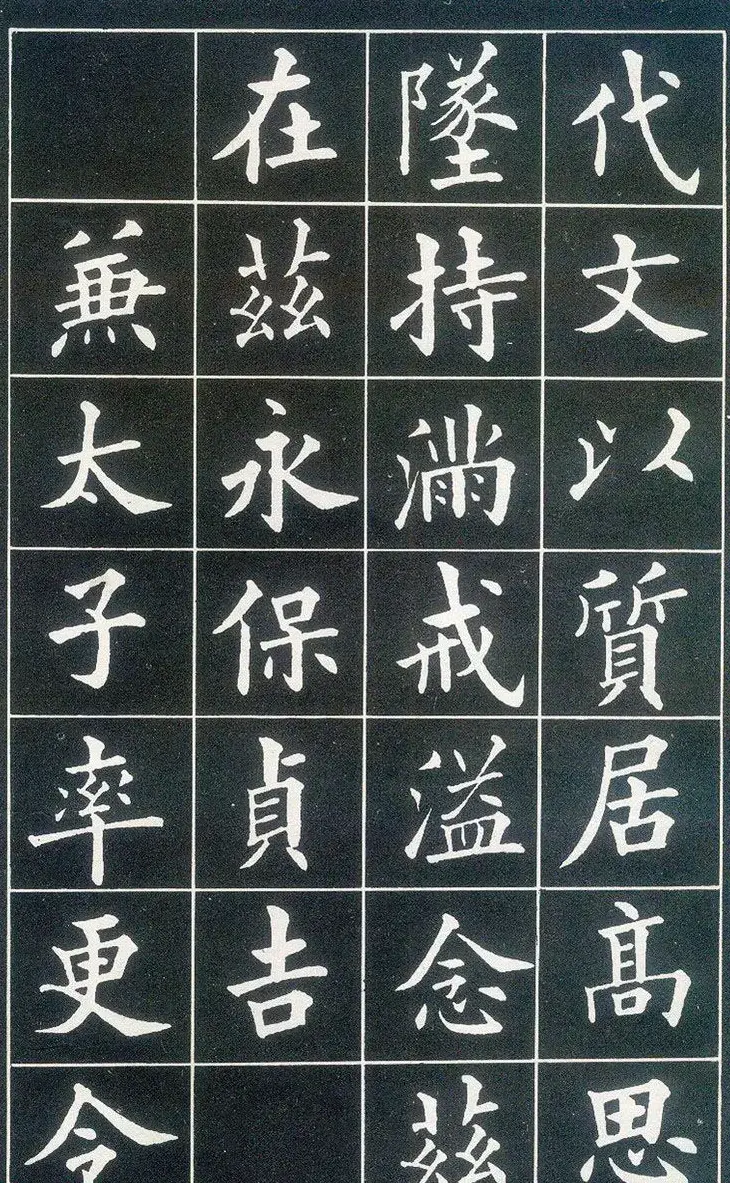 代文以質居髙思
墜持滿戒溢念兹
在茲永保貞吉
兼太子率更令